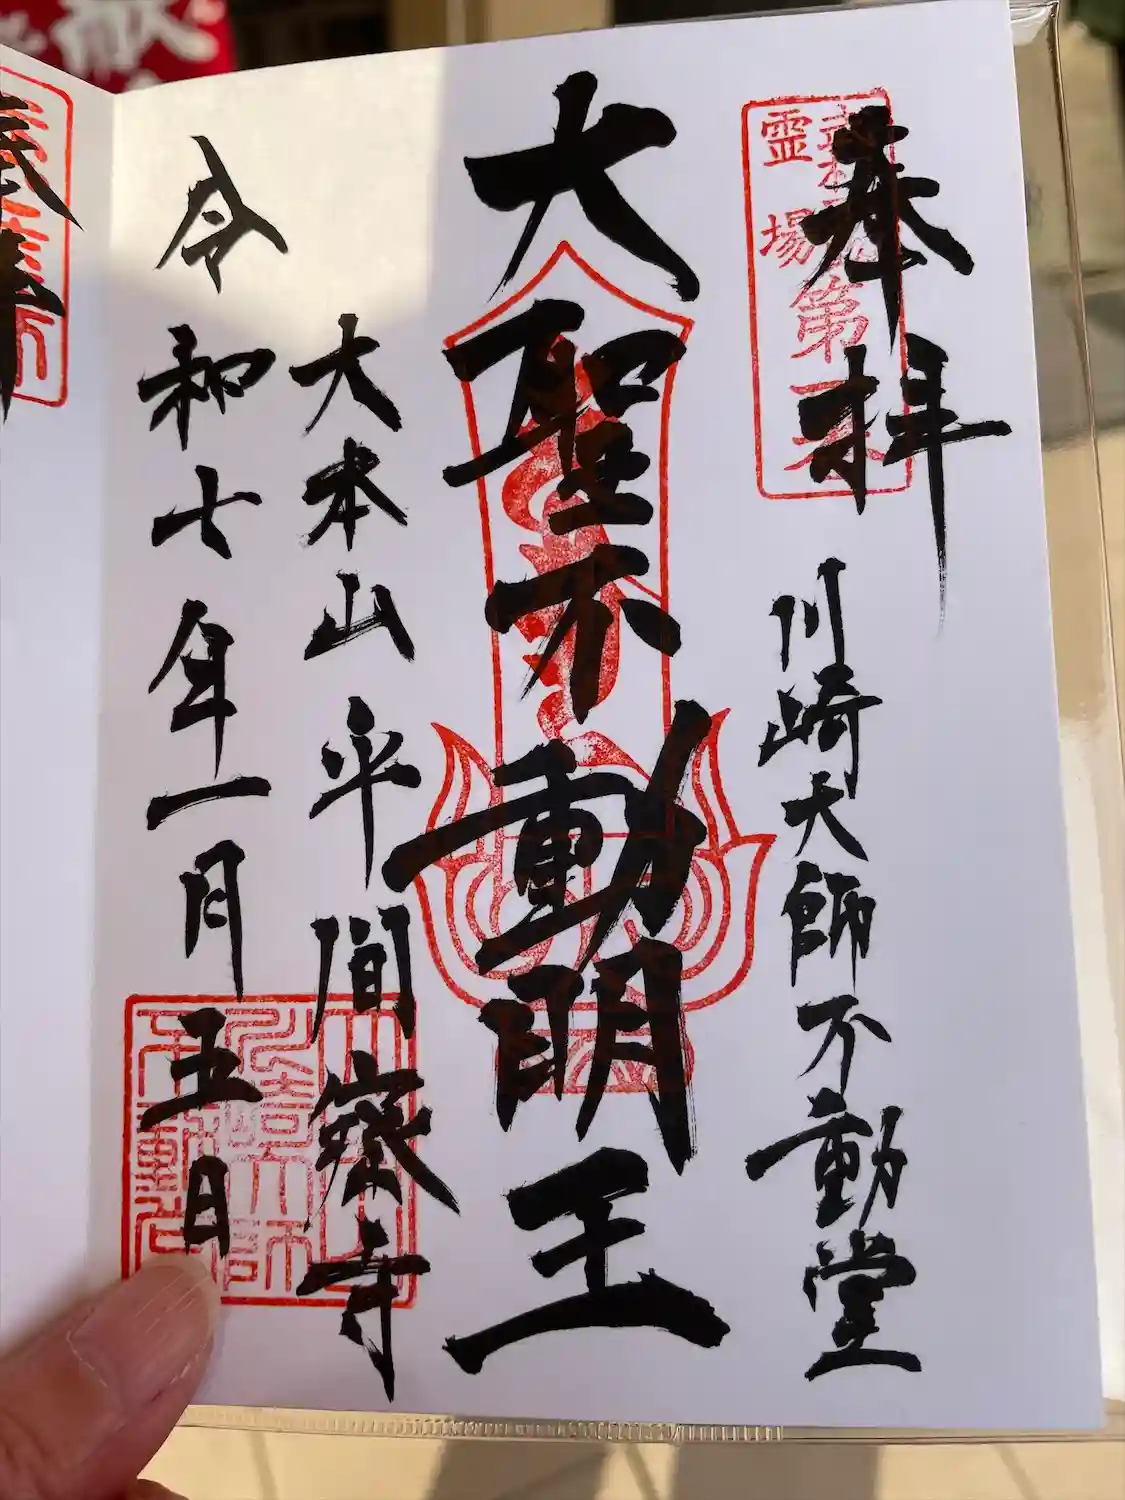 奉拝
川崎大師不動堂
霊場
第
大聖不動明王
大本山平間寺
令和七年一月五日